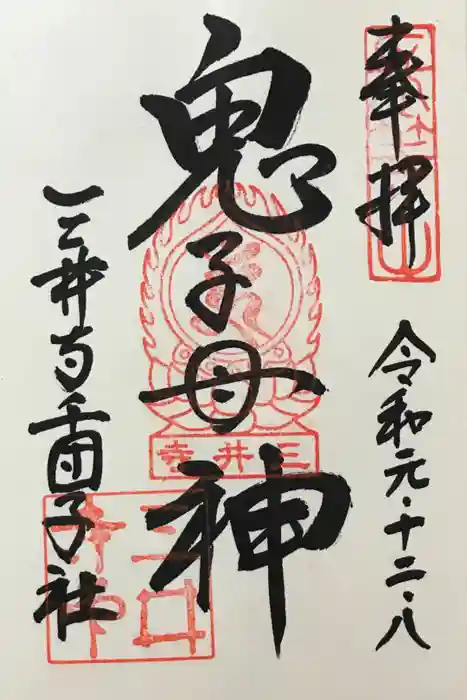 奉拝
令和元・十二・八
鬼子母神
三井寺
三井寺千団子社
三井寺印